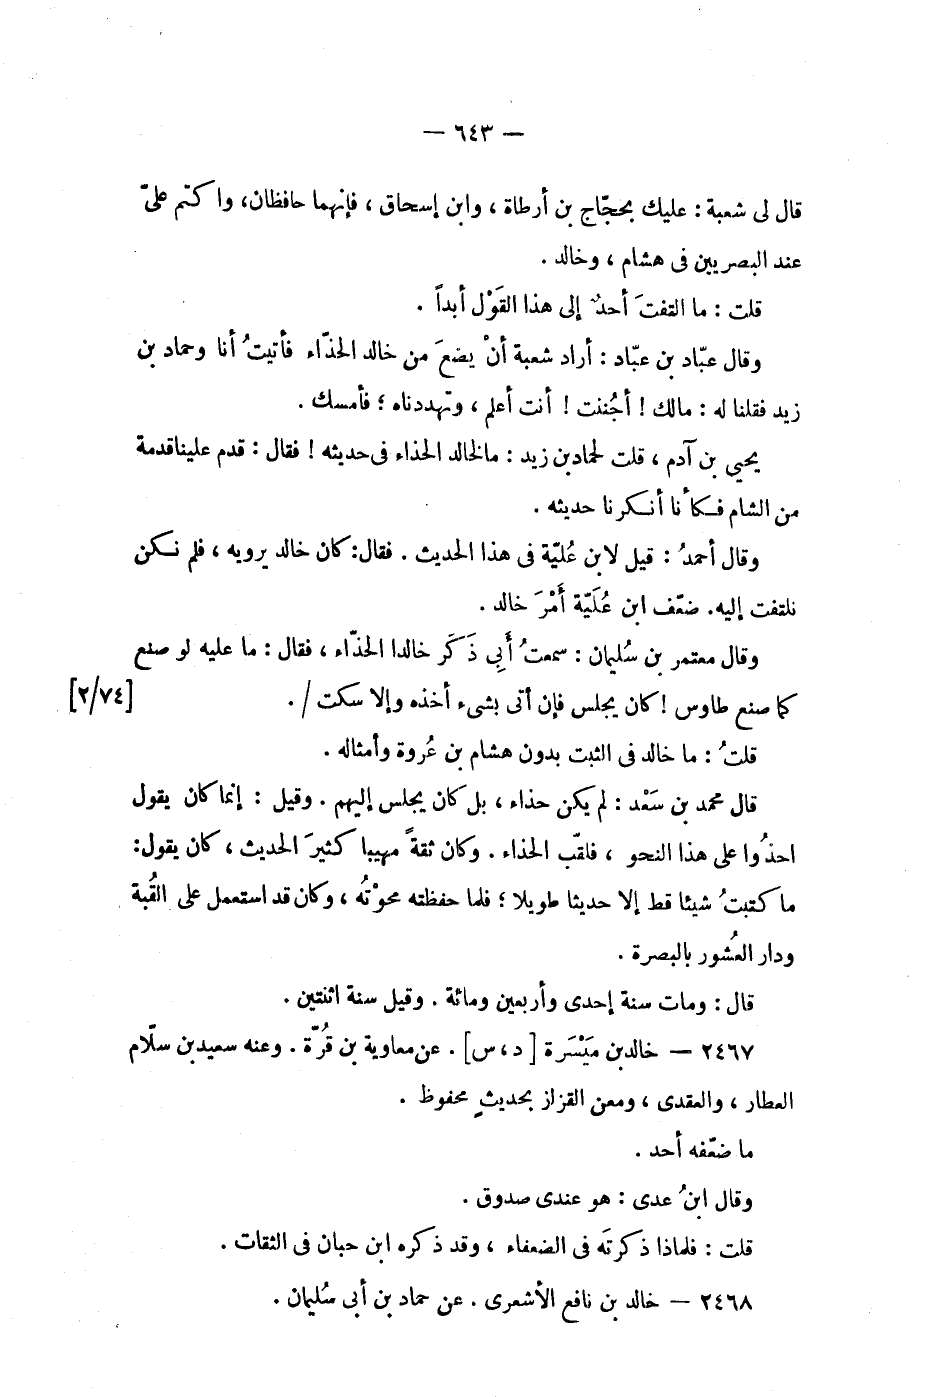 — ٦٤٣ —
قال لى شعبة : عليك بحجّاج بن أرطاة ، وابن إسحاق ، فإنهما حافظان، واكتم علىّ
عند البصريين فى هشام ، وخالد .
قلت : ما التفتَ أحدٌ إلى هذا القَوْل أبداً .
وقال عبّاد بن عبّاد : أراد شعبة أنْ يضعَ من خالد الحذّاء فأتيتُ أنا وحماد بن
زيد فقلنا له : مالك ! أجُننت ! أنت أعلم ، وتهددناه ؛ فأمسك .
يحيي بن آدم ، قلت لحمادبن زيد : مالخالد الحذاء فى حديثه ! فقال : قدم عليناقدمة
من الشام فكأنا أنكرنا حديثه .
وقال أحمدُ : قيل لابن عُليّة فى هذا الحديث . فقال: كان خالد يرويه ، فلم نكن
نلتفت إليه. ضعّف ابن عُلَيّة أَمْرَ خالد .
وقال معتمر بن سُليمان : سمعتُ أَبِي ذَكَر خالدا الحذّاء ، فقال : ما عليه لو صنع
كما صنع طاوس ! كان يجلس فإن أتى بشىء أخذه وإلا سكت / . [٢/٧٤]
قلتُ : ما خالد فى الثبت بدون هشام بن عُروة وأمثاله .
قال محمد بن سَعْد : لم يكن حذاء ، بل كان يجلس إليهم . وقيل : إنما كان يقول
احذُوا على هذا النحو ، فلقّب الحذاء . وكان ثقةً مهيبا كثيرَ الحديث ، كان يقول:
ما كتبتُ شيئا قط إلا حديثا طويلا ؛ فلما حفظته محوْتُه ، وكان قد استعمل على القُبة
ودار العُشور بالبصرة .
قال : ومات سنة إحدى وأربعين ومائة . وقيل سنة اثنتين .
٢٤٦٧ — خالدبن مَيْسَرة [ د ، س ] . عن معاوية بن قُرّة . وعنه سعيدبن سلّام
العطار ، والعقدى ، ومعن القزاز بحديثٍ محفوظ .
ما ضعّفه أحد .
وقال ابنُ عدى : هو عندى صدوق .
قلت : فلماذا ذكرتَه فى الضعفاء ، وقد ذكره ابن حبان فى الثقات .
٢٤٦٨ — خالد بن نافع الأشعرى . عن حماد بن أبى سُليمان .